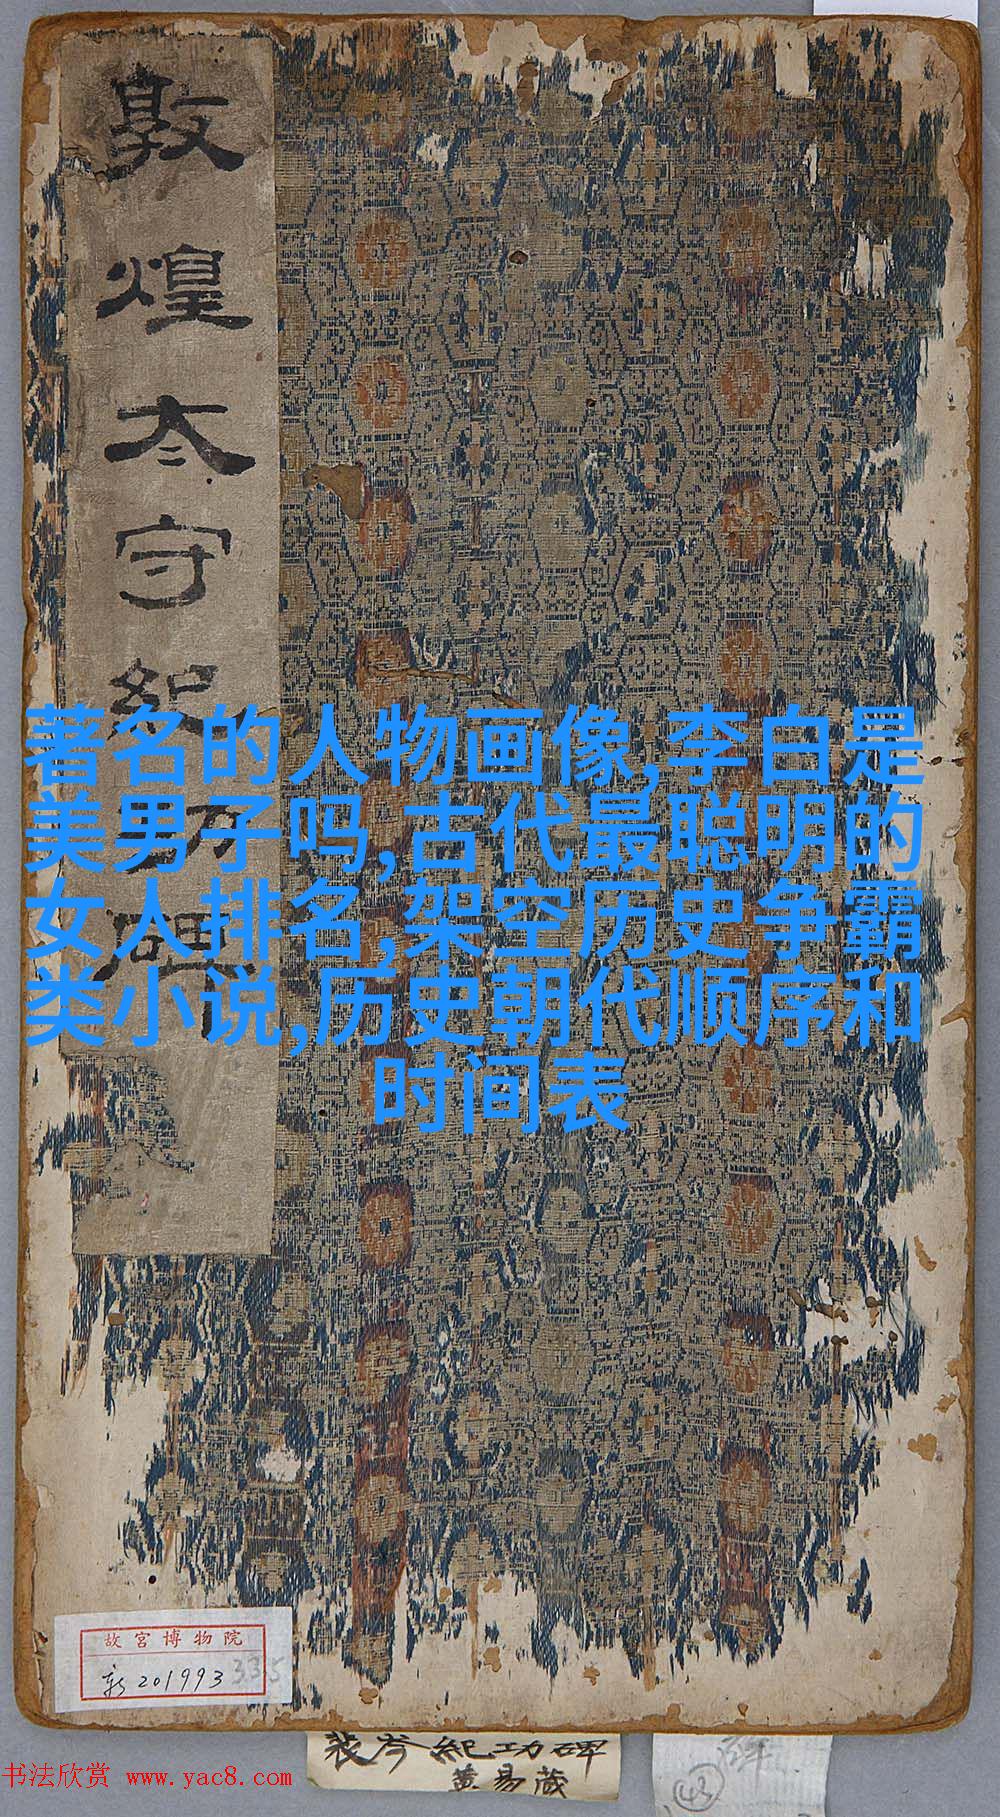 敦煌太守紀功碑
著名的人物画像,李白是
美男子吗,古代最聪明的
女人排名,架空历史争霸
类小说,历史朝代顺序和
时间表
故宫博物院
新201993
335
裴岑紀功碑
黄易藏
43
书法欣赏 www.yac8.com